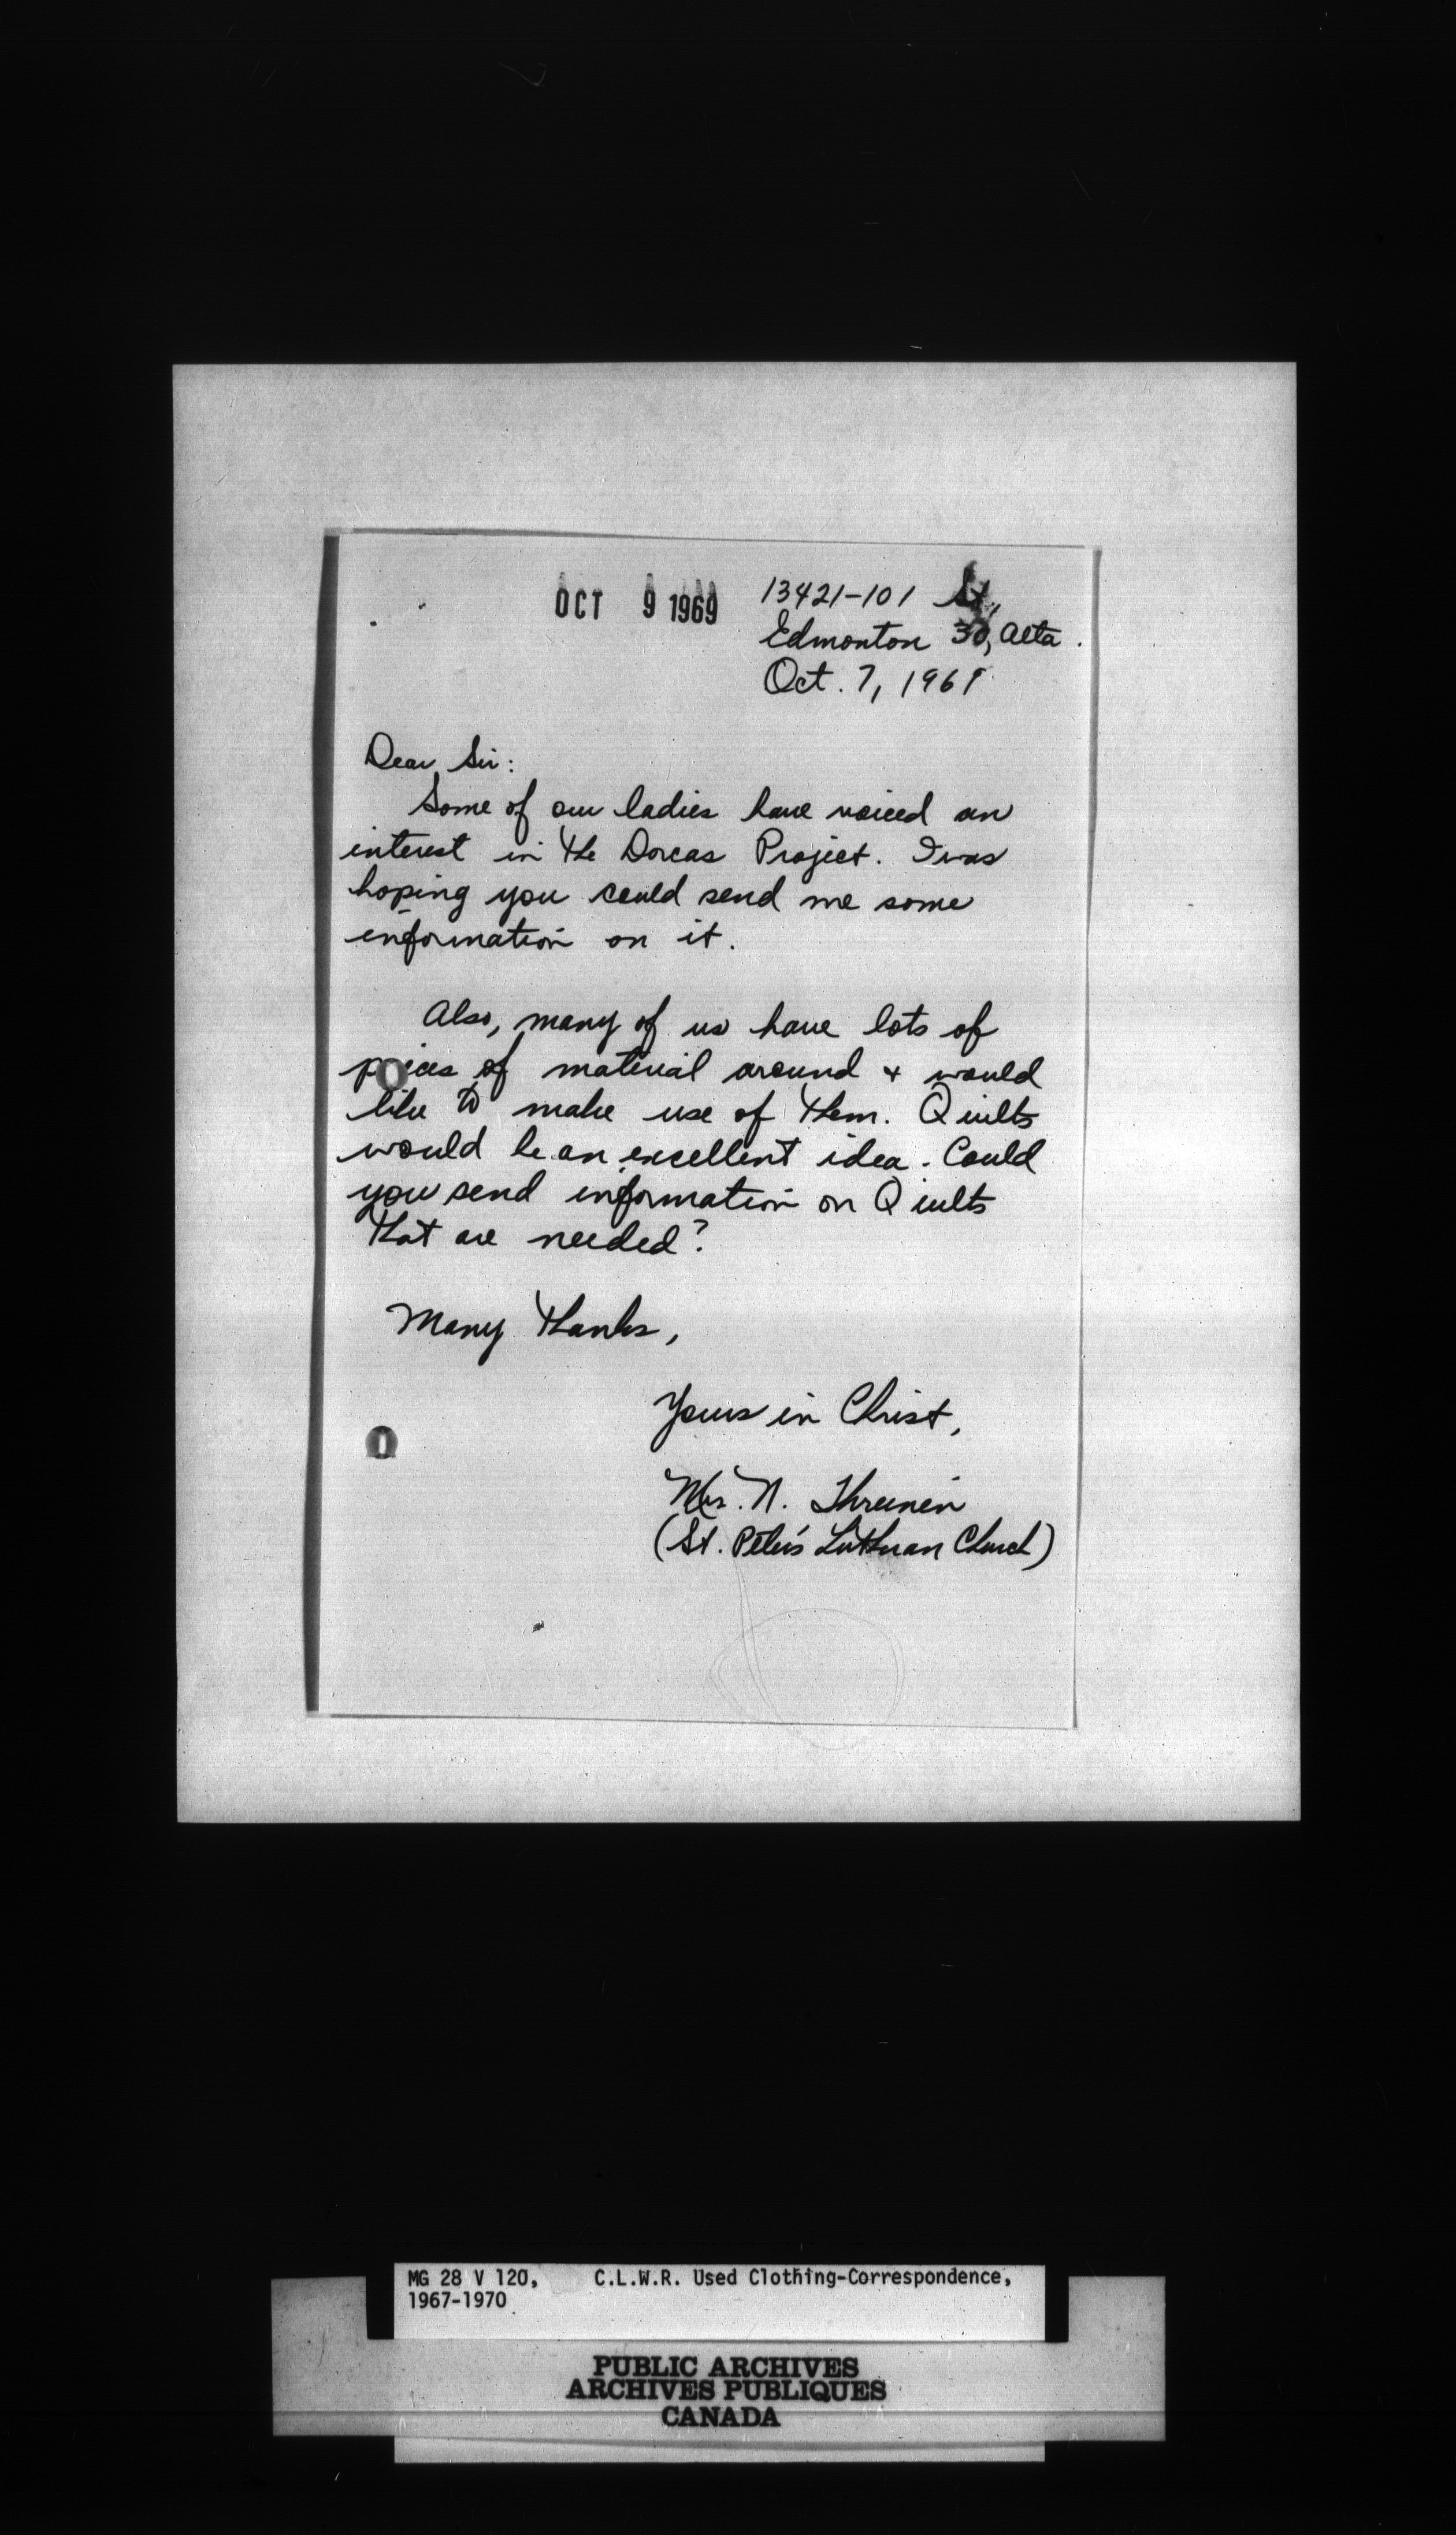 OCT 9 1969
13421-101 St,
Edmonton 30, Alta.
Oct. 7, 1969
Dear Sir:
Some of our ladies have voiced an
interest in the Dorcas Project. I was
hoping you could send me some
information on it.
Also, many of us have lots of
peices of material around + would
like to make use of them. Quilts
would be an excellent idea. Could
you send information on Quilts
that are needed?
Many thanks,
Yours in Christ,
Mrs. N. Threinen
(St. Peter's Lutheran Church)
MG 28 V 120, C.L.W.R. Used Clothing-Correspondence,
1967-1970
PUBLIC ARCHIVES
ARCHIVES PUBLIQUES
CANADA